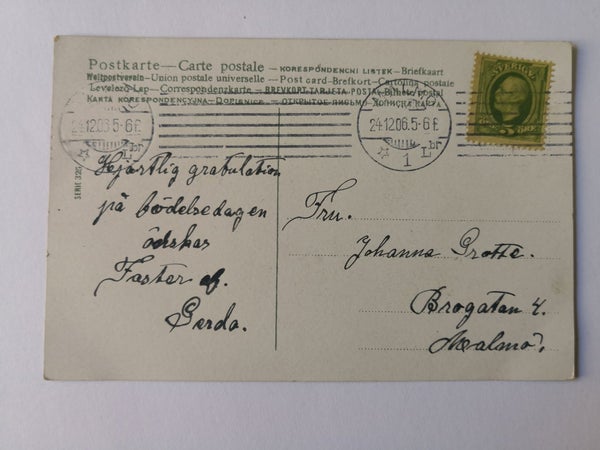 Postkarte — Carte postale — KORESPONDENCNI LISTEK — Briefkaart
Weltpostverein — Union postale universelle — Post card — Brefkort — Cartolina postale
Levelező-Lap — Correspondenzkarte — BREVKORT — TARJETA POSTAL — Bilhete postal
KARTA KORESPONDENCYJNA — DOPISNICE — ОТКРЫТОЕ ПИСЬМО
SVERIGE
5 ÖRE
24.12.06.5-6 f.
L br
24.12.06.5-6 f.
1 L br
SERIE 320
Hjärtlig gratulation
på födelsedagen
önskas
Faster af.
Gerda.
Fru.
Johanna Grotte.
Brogatan 4.
Malmö.